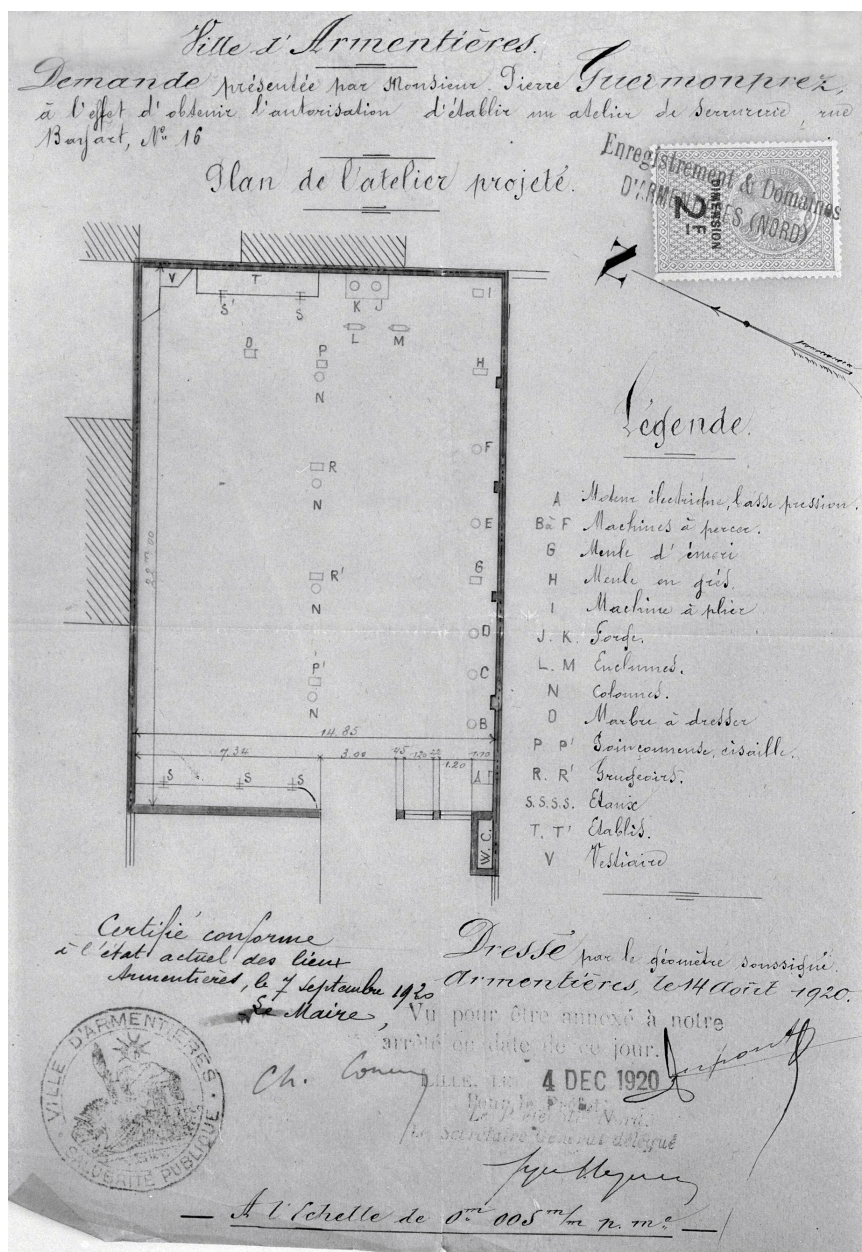 Ville d'Armentières.
Demande présentée par Monsieur Pierre Guermonprez,
à l'effet d'obtenir l'autorisation d'établir un atelier de serrurerie, rue
Bayart, N° 16
Plan de l'atelier projeté.
Enregistrement & Domaines
D'ARMENTIÈRES (NORD)
DIMENSION
2F
N
V
T
S'
S
K
J
I
L
M
D
P
N
H
R
N
F
E
R'
N
G
D
C
P'
N
B
22m00
14.85
7.34
3.00
45
1.20
22
1.20
1.70
S
S
S
A
W.C.
Légende.
A Moteur électrique, basse pression.
B à F Machines à percer.
G Meule d'émeri
H Meule en grès.
I Machine à plier
J. K. Forge.
L. M Enclumes.
N Colonnes.
D Marbre à dresser
P P' Poinçonneuse, cisaille.
R. R' Grugeoirs.
S.S.S.S. Etaux
T. T' Etablis.
V Vestiaire
Certifié conforme
à l'état actuel des lieux
Armentières, le 7 septembre 1920
Le Maire,
VILLE D'ARMENTIÈRES
SALUBRITÉ PUBLIQUE
Dressé par le géomètre soussigné.
Armentières, le 14 Août 1920.
Vu pour être annexé à notre
arrêté en date de ce jour.
LILLE, LE 4 DEC 1920
Pour le Préfet
Le Secrétaire Général délégué
A l'Echelle de 0m 005 m/m p. me